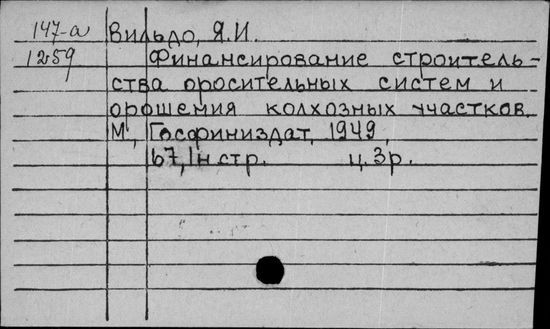 147-а Вильдо, Я.И.
1259 Финансирование строитель-
ства оросительных систем и
орошения колхозных участков.
М., Госфиниздат, 1949,
67, 1н.стр. ц. 3р.